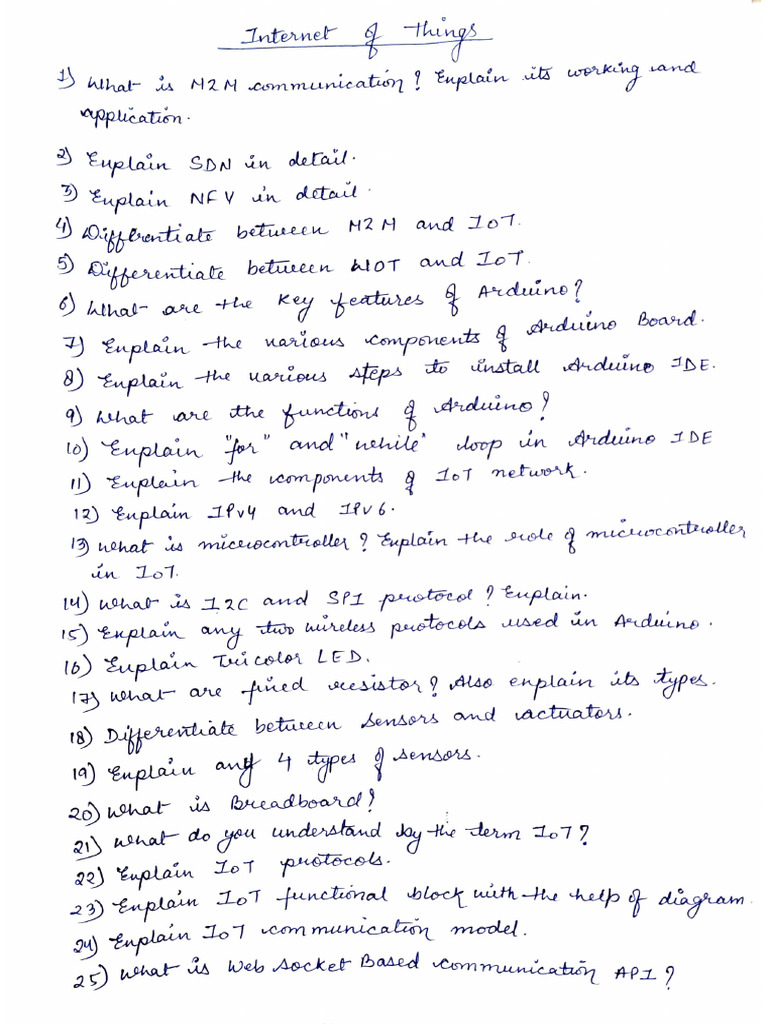 Internet of Things
1) What is M2M communication? Explain its working and
application.
2) Explain SDN in detail.
3) Explain NFV in detail.
4) Differentiate between M2M and IoT.
5) Differentiate between WOT and IoT.
6) What are the key features of Arduino?
7) Explain the various components of Arduino Board.
8) Explain the various steps to install Arduino IDE.
9) What are the functions of Arduino?
10) Explain "for" and "while" loop in Arduino IDE
11) Explain the components of IoT network.
12) Explain IPv4 and IPv6.
13) What is microcontroller? Explain the role of microcontroller
in IoT.
14) What is I2C and SPI protocol? Explain.
15) Explain any two wireless protocols used in Arduino.
16) Explain Tricolor LED.
17) What are fixed resistor? Also explain its types.
18) Differentiate between sensors and actuators.
19) Explain any 4 types of sensors.
20) What is Breadboard?
21) What do you understand by the term IoT?
22) Explain IoT protocols.
23) Explain IoT functional block with the help of diagram.
24) Explain IoT communication model.
25) What is Web Socket Based communication API?